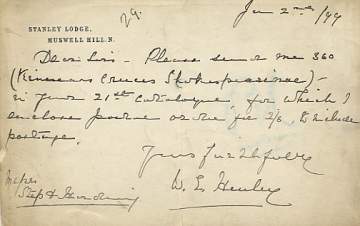 29.
Jan 2nd/99
STANLEY LODGE,
MUSWELL HILL. N.
Dear Sirs - Please send me 360
(Kinnear's Cruces Shakespearianae) -
in your 21st catalogue, for which I
enclose postal order for 2/6, to include
postage.
Yours faithfully
W. E. Henley
Messrs